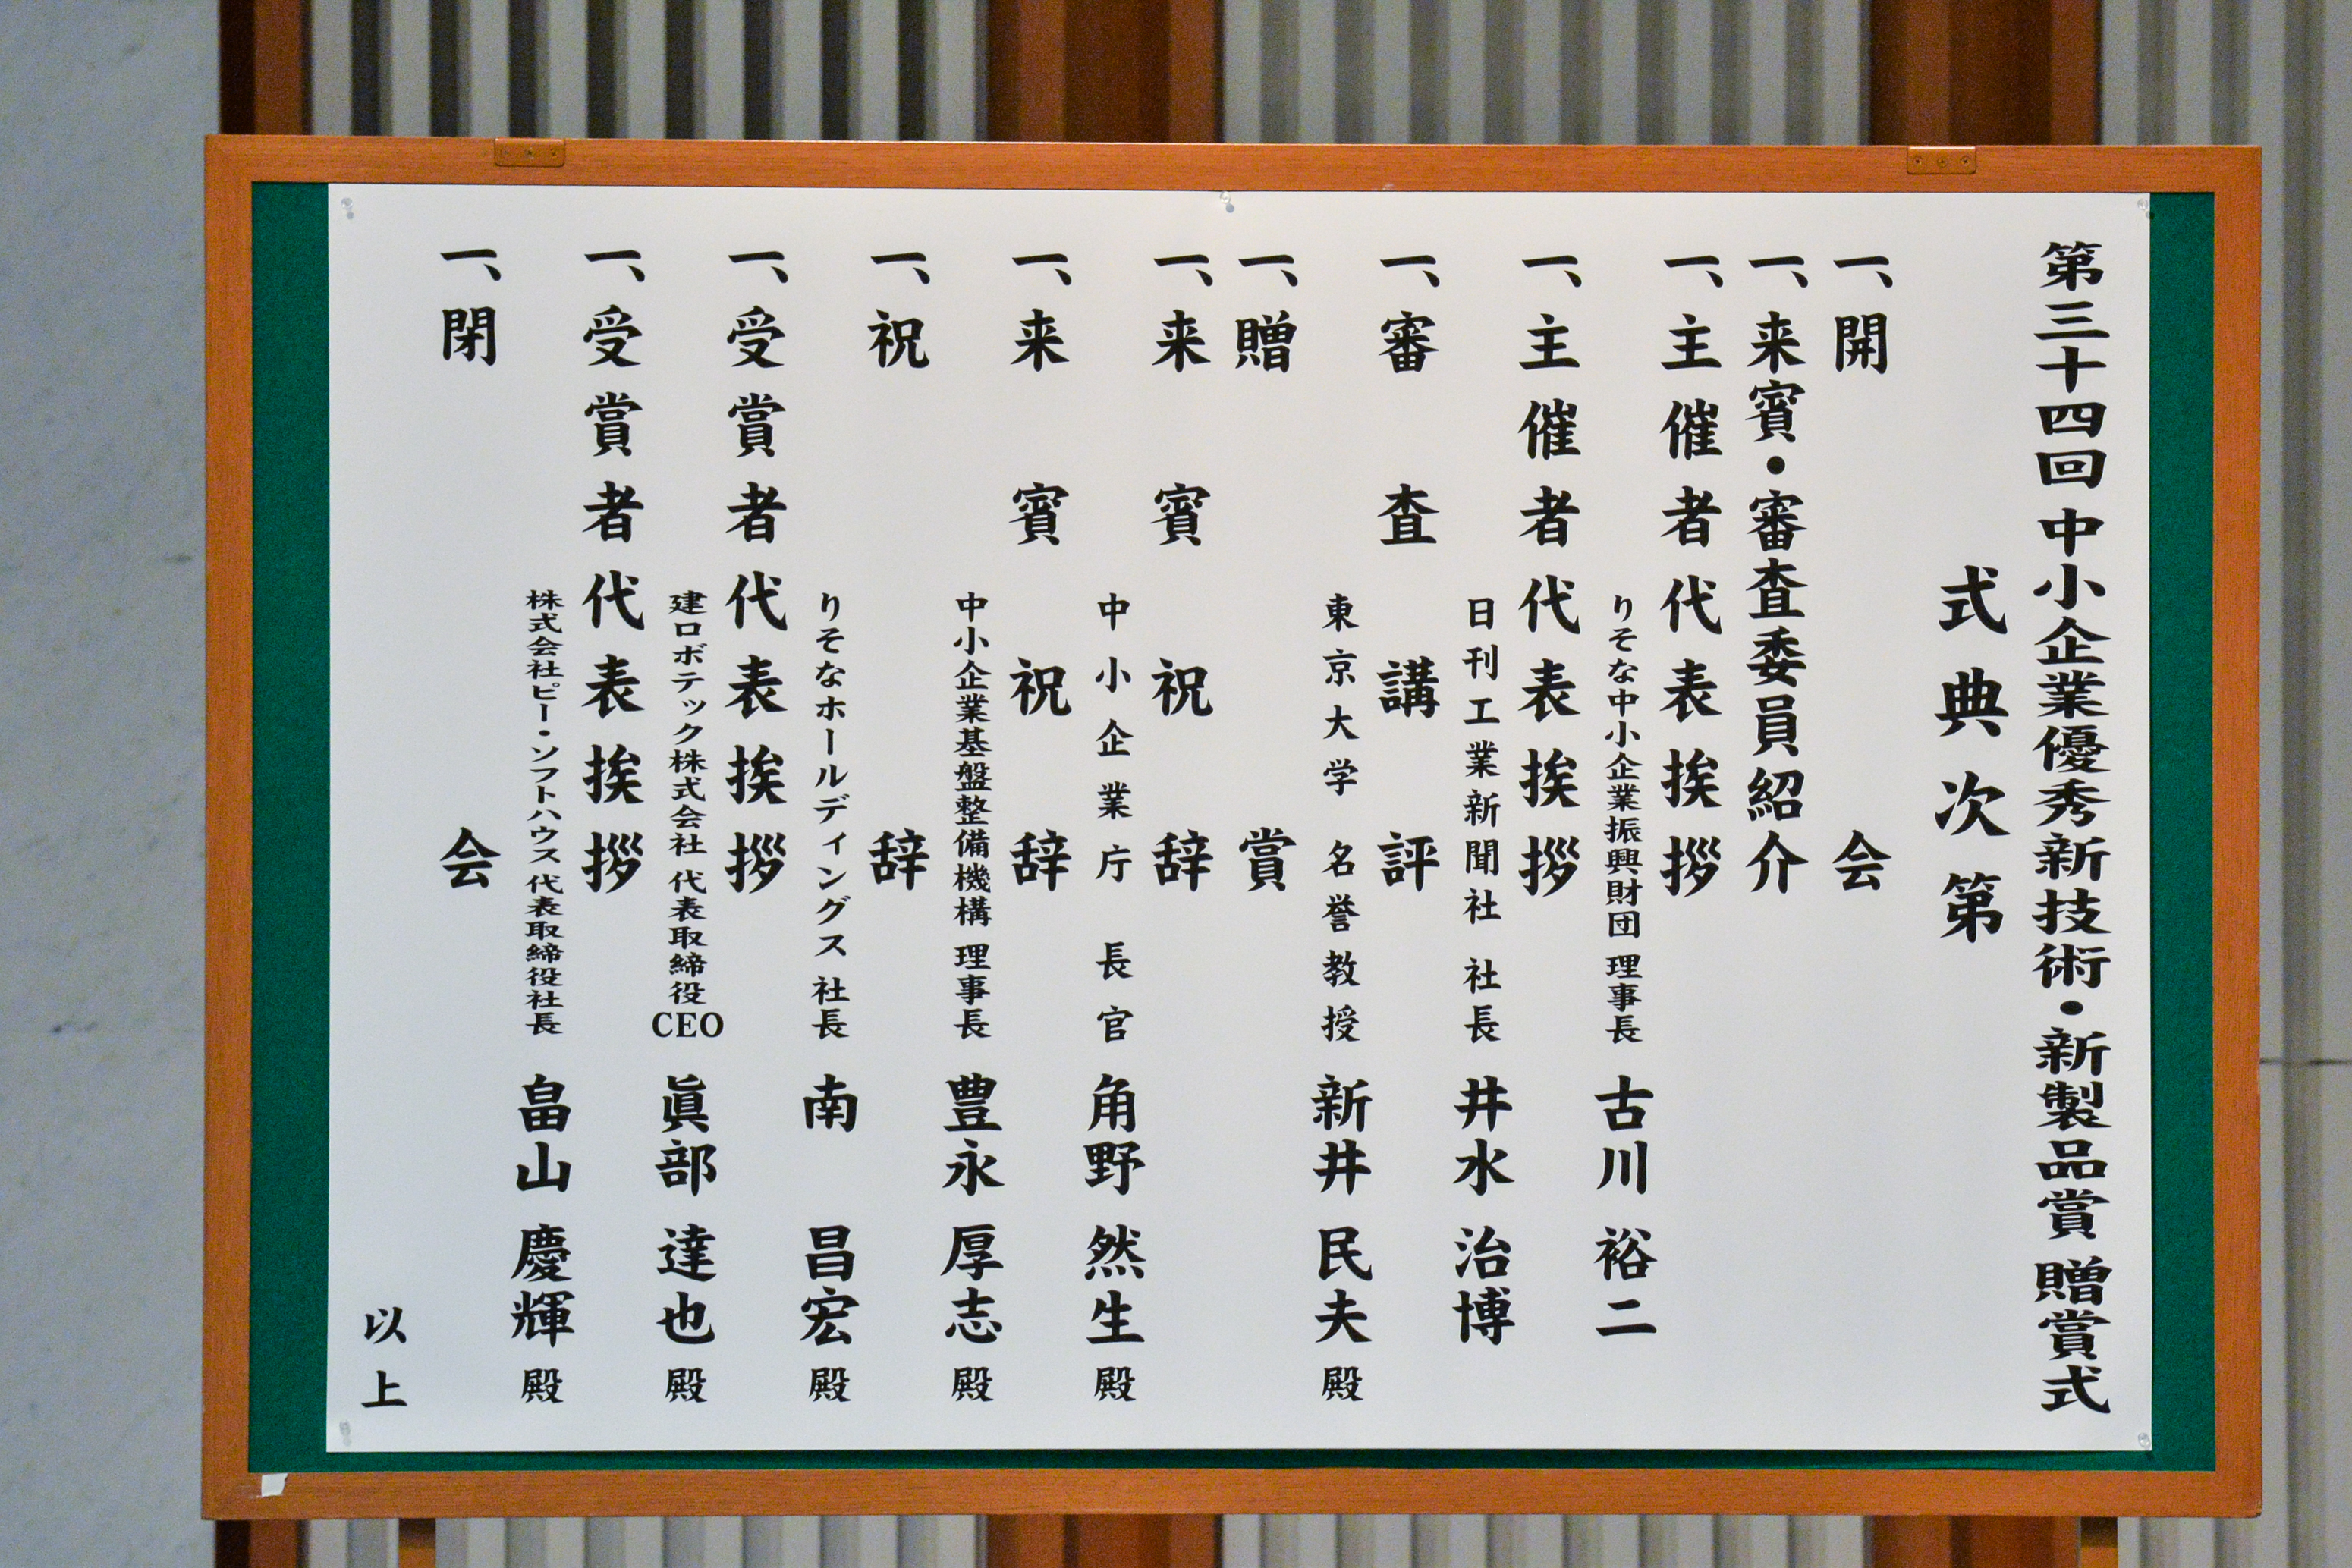 第三十四回 中小企業優秀新技術・新製品賞 贈賞式
式典次第
一、開会
一、来賓・審査委員紹介
一、主催者代表挨拶
りそな中小企業振興財団 理事長 古川 裕二
一、主催者代表挨拶
日刊工業新聞社 社長 井水 治博
一、審査講評
東京大学 名誉教授 新井 民夫 殿
一、贈賞
一、来賓祝辞
中小企業庁 長官 角野 然生 殿
一、来賓祝辞
中小企業基盤整備機構 理事長 豊永 厚志 殿
一、祝辞
りそなホールディングス 社長 南 昌宏 殿
一、受賞者代表挨拶
建ロボテック株式会社 代表取締役CEO 眞部 達也 殿
一、受賞者代表挨拶
株式会社ピー・ソフトハウス 代表取締役社長 畠山 慶輝 殿
一、閉会
以上